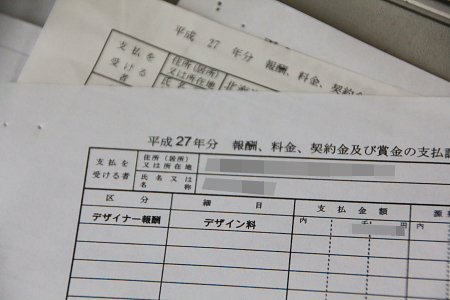 平成 27 年分 報酬、料金、契約金
支払を
受ける者
住所(居所)
又は所在地
平成 27年分 報酬、料金、契約金及び賞金の支払調
支払を
受ける者
住所(居所)
又は所在地
氏名又は
名称
区分 細目 支払金額 源
内 千 円 内
デザイナー報酬 デザイン料